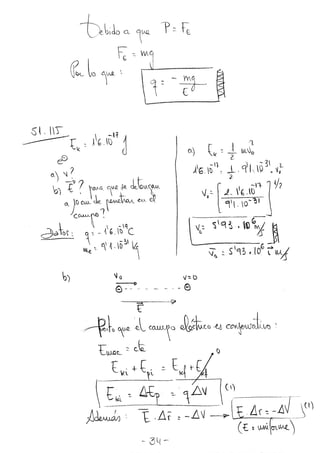 Debido a que P = Fε
Fε = mg
Por lo que: q = - mg / E
S1.115
Eκ = 1'6.10⁻¹⁷ J
e⊖
a) v?
b) E⃗? para que se detengan a 10 cm de penetrar en el campo?
Datos: q = -1'6.10⁻¹⁹ C
mₑ = 9'1.10⁻³¹ kg
a) Eκ = 1/2 mv₀²
1'6.10⁻¹⁷ = 1/2 . 9'1.10⁻³¹ . v₀²
v₀ = [2.1'6.10⁻¹⁷ / 9'1.10⁻³¹]^1/2
v₀ = 5'93.10⁶ m/s
v̄₀ = 5'93.10⁶ i⃗ m/s
b)
v₀ v=0
E⃗
Puesto que el campo eléctrico es conservativo:
Emec = cte
Eκi + Epi = Eκf + Epf 0
Eκi = ΔEp = qΔV (1)
Además: E̅.Δr̅ = -ΔV → E.Δr = -ΔV (2)
(E = uniforme)
- 34 -